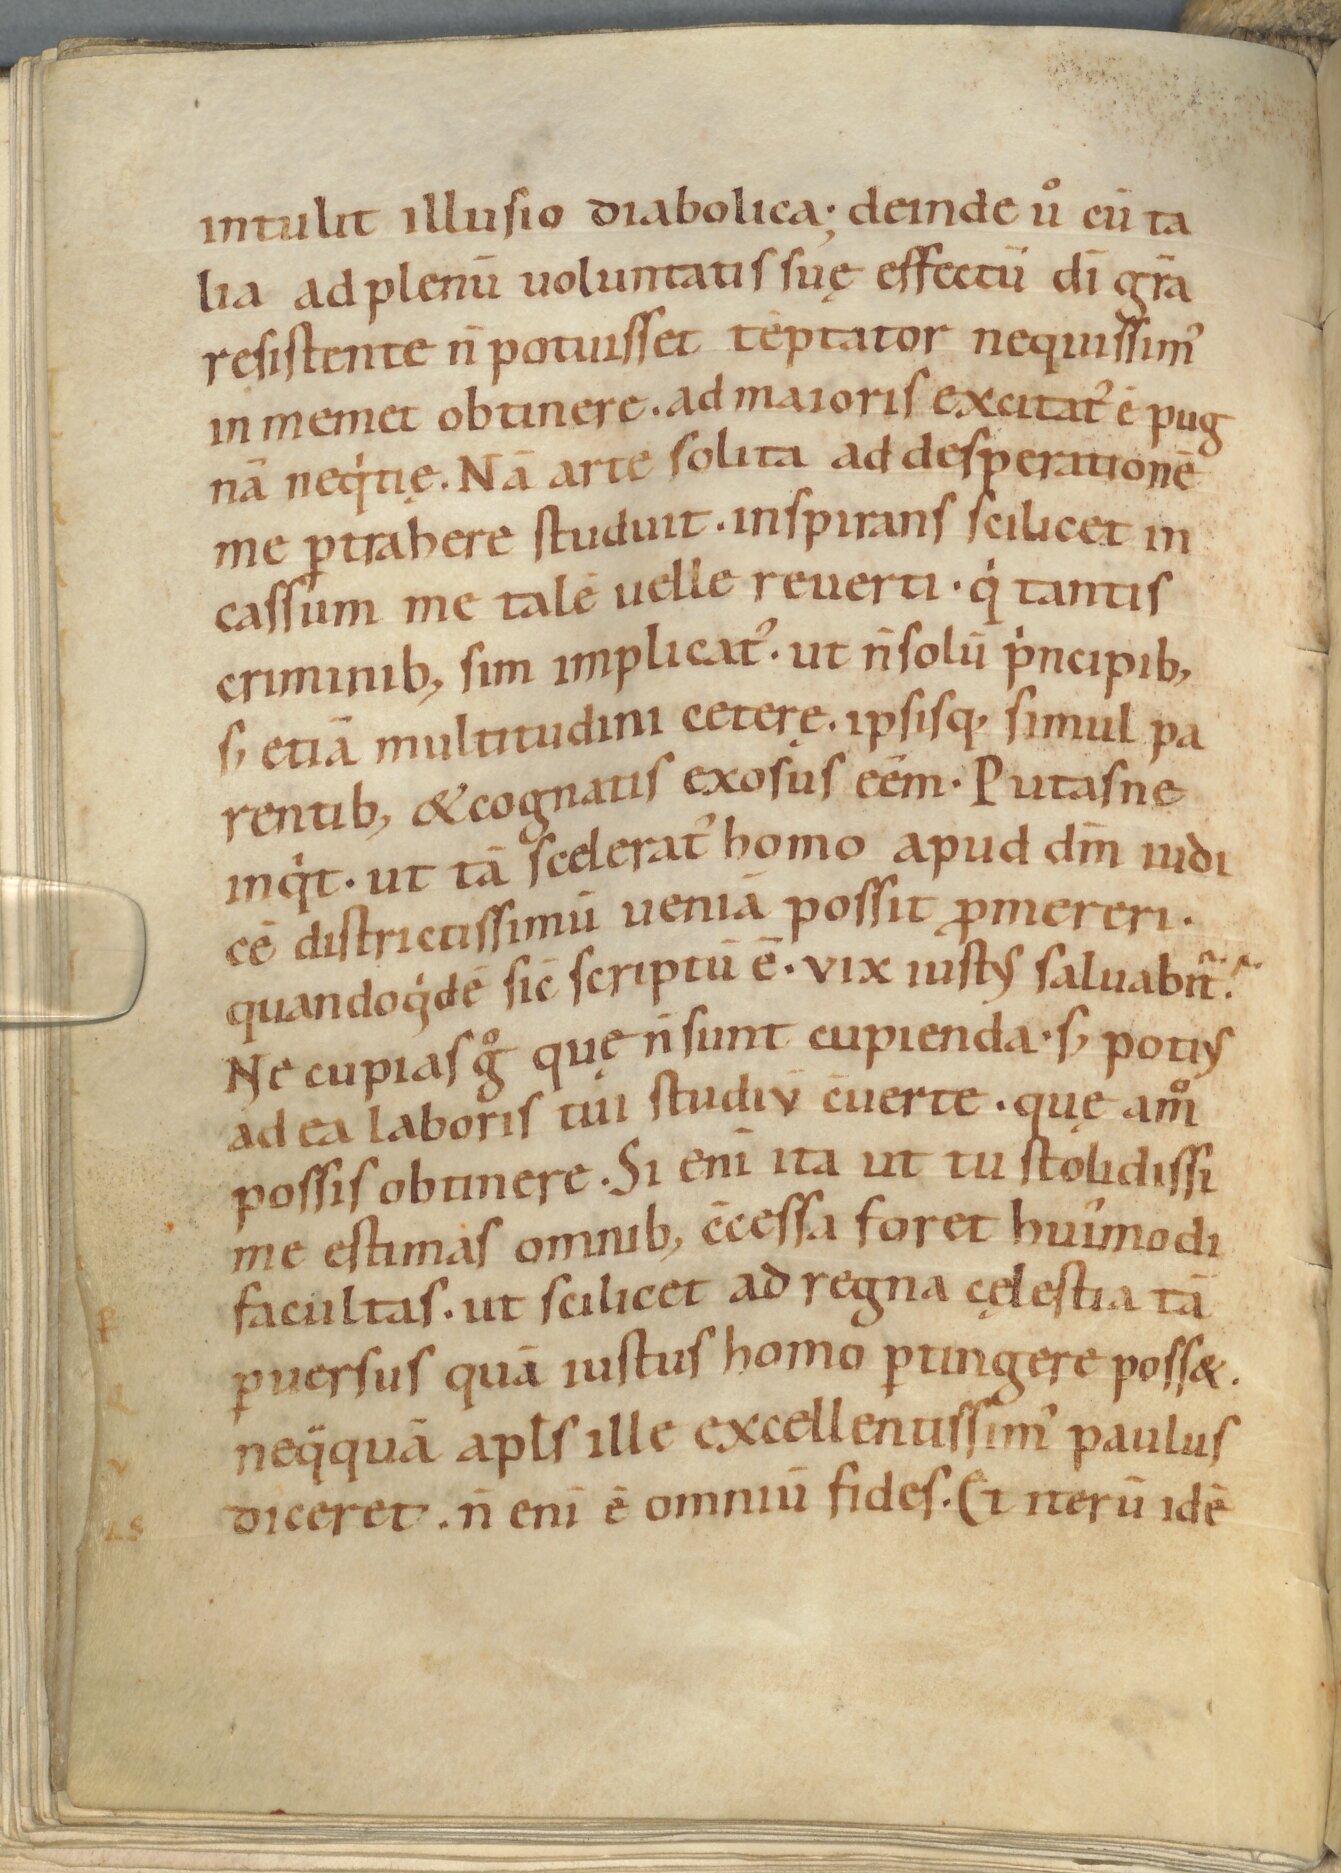 intulit illusio diabolica; deinde uͦ cū ta
lia ad plenū uoluntatis suę effectū dī gr̄a
resistente n̄ potuisset tēptator nequissim᾿
in memet obtinere. ad maioris excitat᾿ ē pug
nā neqͥtię. Nā arte solita ad desperationē
me ꝑtrahere studuit. inspirans scilicet in
cassum me talē uelle reuerti. qͥ tantis
criminib; sim implicat᾿. ut n̄ solū pͥncipib;
s; etiā multitudini ceterę. ipsisq; simul pa
rentib; & cognatis exosus eēm. Putasne
inqͥt. ut tā scelerat᾿ homo apud dm̄ iudi
cē districtissimū ueniā possit ꝓmereri.
quandoqͥdē sic̄ scriptū ē. vix iustꝰ saluabit᷑.
Ne cupias gͦ quę n̄ sunt cupienda. s; potiꝰ
ad ea laboris tui studiv̄ c̄uerte. quę am̊
possis obtinere. Si enī ita ut tu stolidissi
me estimas omnib; c̄cessa foret hui᾿modi
facultas. ut scilicet ad regna cęlestia tā
ꝑuersus quā iustus homo ꝑtingere poss&.
neqͣquā apl̄s ille excellentissim᾿ paulus
diceret. n̄ enī ē omniū fides. Et iterū idē